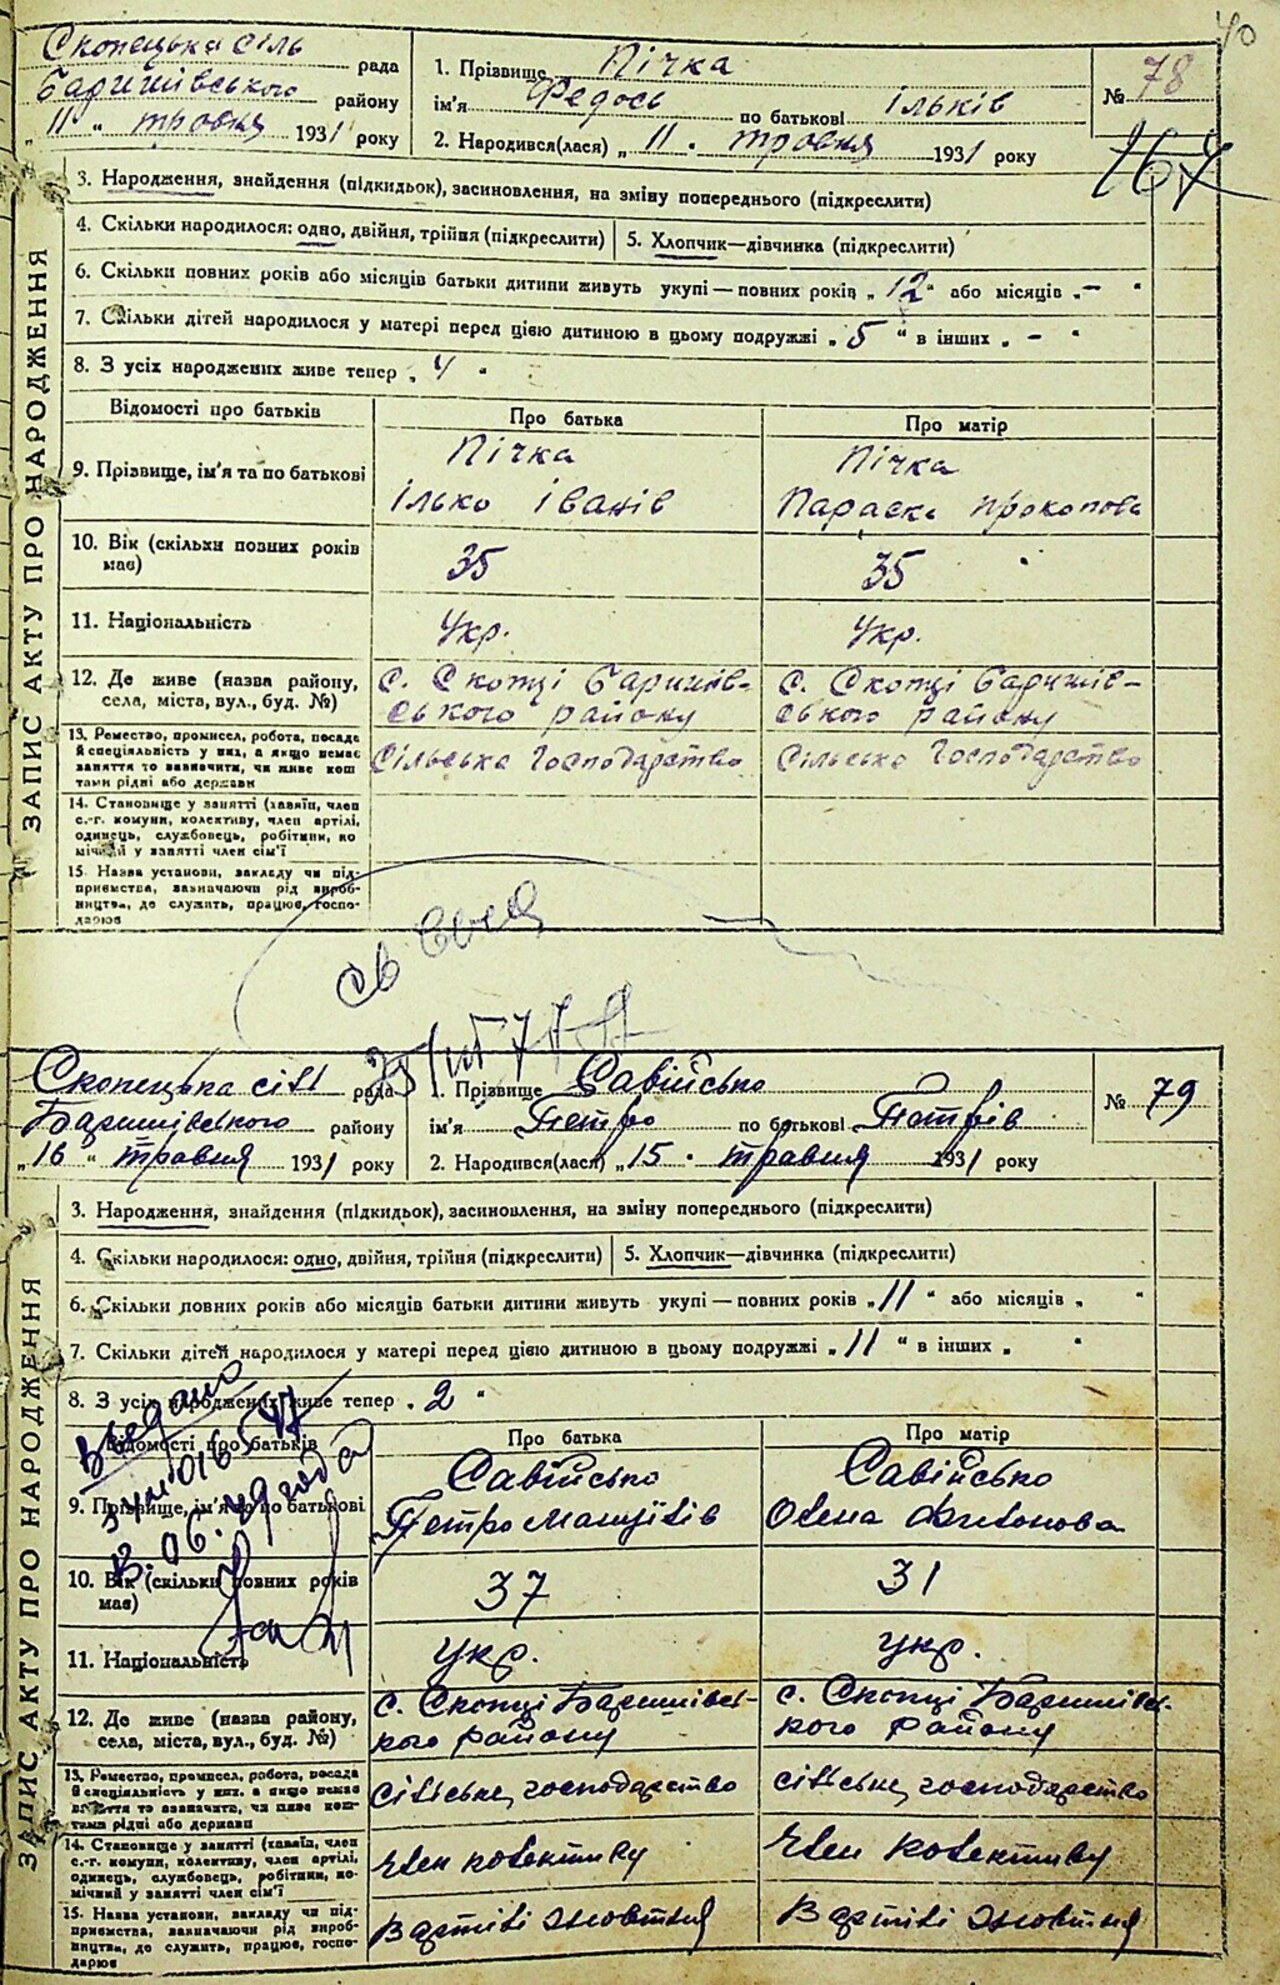 40
Скопецька сіль рада
Баришівського району
„ 11 “ травня 1931 року
1. Прізвище Пічка
ім'я Федось по батькові Ільків
2. Народився(лася) „ 11 . травня 1931 року
№ 78
164
ЗАПИС АКТУ ПРО НАРОДЖЕННЯ
3. Народження, знайдення (підкидьок), засиновлення, на зміну попереднього (підкреслити)
4. Скільки народилося: одно, двійня, трійня (підкреслити)
5. Хлопчик—дівчинка (підкреслити)
6. Скільки повних років або місяців батьки дитини живуть укупі — повних років „ 12 “ або місяців „ – “
7. Скільки дітей народилося у матері перед цією дитиною в цьому подружжі „ 5 “ в інших „ – “
8. З усіх народжених живе тепер „ 4 “
Відомості про батьків Про батька Про матір
9. Прізвище, ім'я та по батькові
Пічка
Ілько Іванів
Пічка
Параска Прокопова
10. Вік (скільки повних років має)
35 35
11. Національність
Укр. Укр.
12. Де живе (назва району,
села, міста, вул., буд. №)
с. Скопці Баришів-
ського району
с. Скопці Баришів-
ського району
13. Ремество, промисел, робота, посада
й спеціяльність у них, а якщо немає
заняття то зазначити, чи живе кош
тами рідні або держави
Сільське Господарство
Сільське Господарство
14. Становище у занятті (хазяїн, член
с.-г. комуни, колективу, член артілі,
одинець, службовець, робітник, по
мічний у занятті член сім'ї
15. Назва установи, закладу чи під-
приємства, зазначаючи рід вироб-
ництва, де служить, працює, госпо-
дарює
Скопецька сіль рада
Баришівського району
„ 16 “ травня 1931 року
1. Прізвище Савійсько
ім'я Петро по батькові Петрів
2. Народився(лася) „ 15 . травня 1931 року
№ 79
ЗАПИС АКТУ ПРО НАРОДЖЕННЯ
3. Народження, знайдення (підкидьок), засиновлення, на зміну попереднього (підкреслити)
4. Скільки народилося: одно, двійня, трійня (підкреслити)
5. Хлопчик—дівчинка (підкреслити)
6. Скільки повних років або місяців батьки дитини живуть укупі — повних років „ 11 “ або місяців „ “
7. Скільки дітей народилося у матері перед цією дитиною в цьому подружжі „ 11 “ в інших „ “
8. З усіх народжених живе тепер „ 2 “
Відомості про батьків Про батька Про матір
9. Прізвище, ім'я та по батькові
Савійсько
Петро
Савійсько
Олена Антонова
10. Вік (скільки повних років має)
37 31
11. Національність
укр. укр.
12. Де живе (назва району,
села, міста, вул., буд. №)
с. Скопці Баришівсь-
кого району
с. Скопці Баришівсь-
кого району
13. Ремество, промисел, робота, посада
й спеціяльність у них, а якщо немає
заняття то зазначити, чи живе кош-
тами рідні або держави
сільське господарство
сільське господарство
14. Становище у занятті (хазяїн, член
с.-г. комуни, колективу, член артілі,
одинець, службовець, робітник, по-
мічний у занятті член сім'ї
член колективу
член колективу
15. Назва установи, закладу чи під-
приємства, зазначаючи рід вироб-
ництва, де служить, працює, госпо-
дарює
В артілі Жовтня
В артілі Жовтня